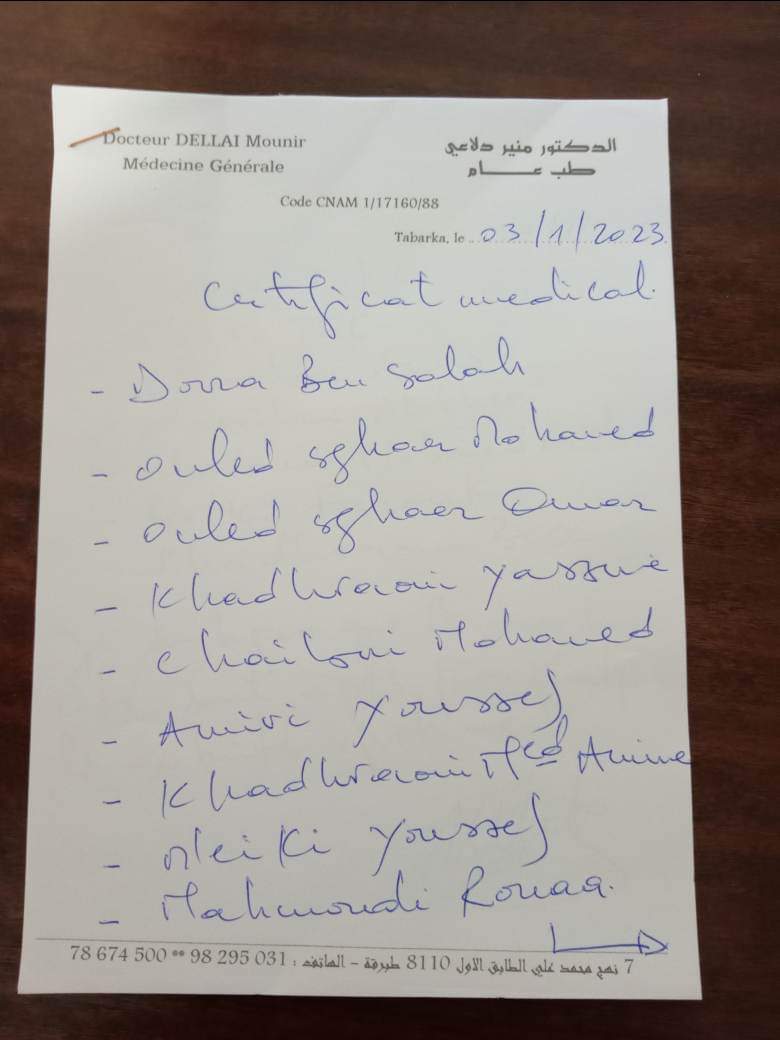 Docteur DELLAI Mounir
Médecine Générale
الدكتور منير دلاعي
طب عـــــام
Code CNAM 1/17160/88
Tabarka, le 03/1/2023
Certificat medical
- Dorra Ben Salah
- Ouled Sghaer Mohamed
- Ouled Sghaer Omar
- Khadhraoui Yassine
- Chaibani Mohamed
- Amiri Youssef
- Khadhraoui Med Amine
- Mleiki Youssef
- Mahmoudi Rouaa.
7 نهج محمد علي الطابق الاول 8110 طبرقة - الهاتف : 031 295 98 ** 500 674 78